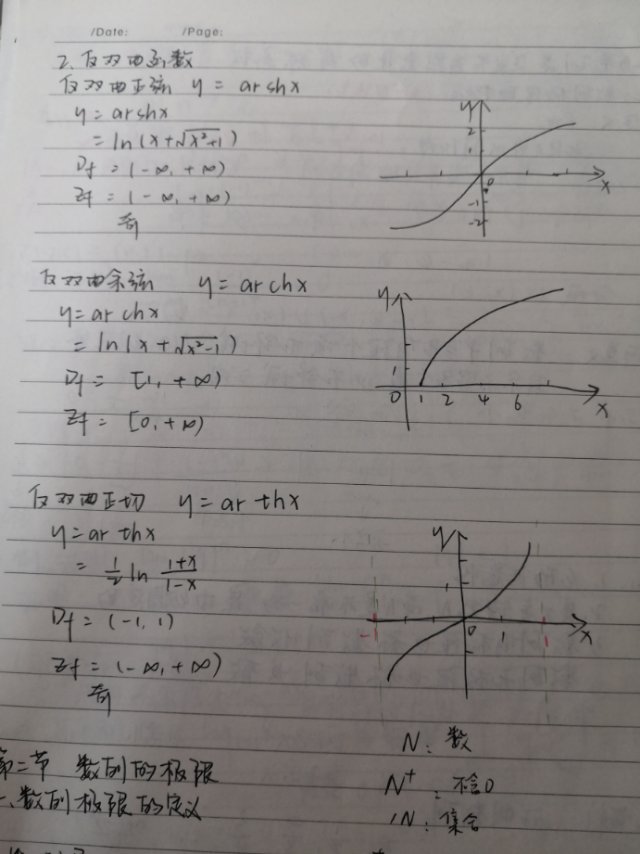 /Date: /Page:
2. 反双曲函数
反双曲正弦 y = arshx
y = arshx
= ln(x+√x²+1)
Df = (-∞, +∞)
Zf = (-∞, +∞)
奇
y
2
1
0
x
-1
-2
反双曲余弦 y = archx
y = archx
= ln(x+√x²-1)
Df = [1, +∞)
Zf = [0, +∞)
y
1
0 1 2 4 6
x
反双曲正切 y = ar thx
y = ar thx
= 1/2 ln 1+x/1-x
Df = (-1, 1)
Zf = (-∞, +∞)
奇
y
1
-1 0 1 1 x
N: 数
第二节 数列的极限
N⁺: 不含0
一、数列极限的定义
IN: 集合